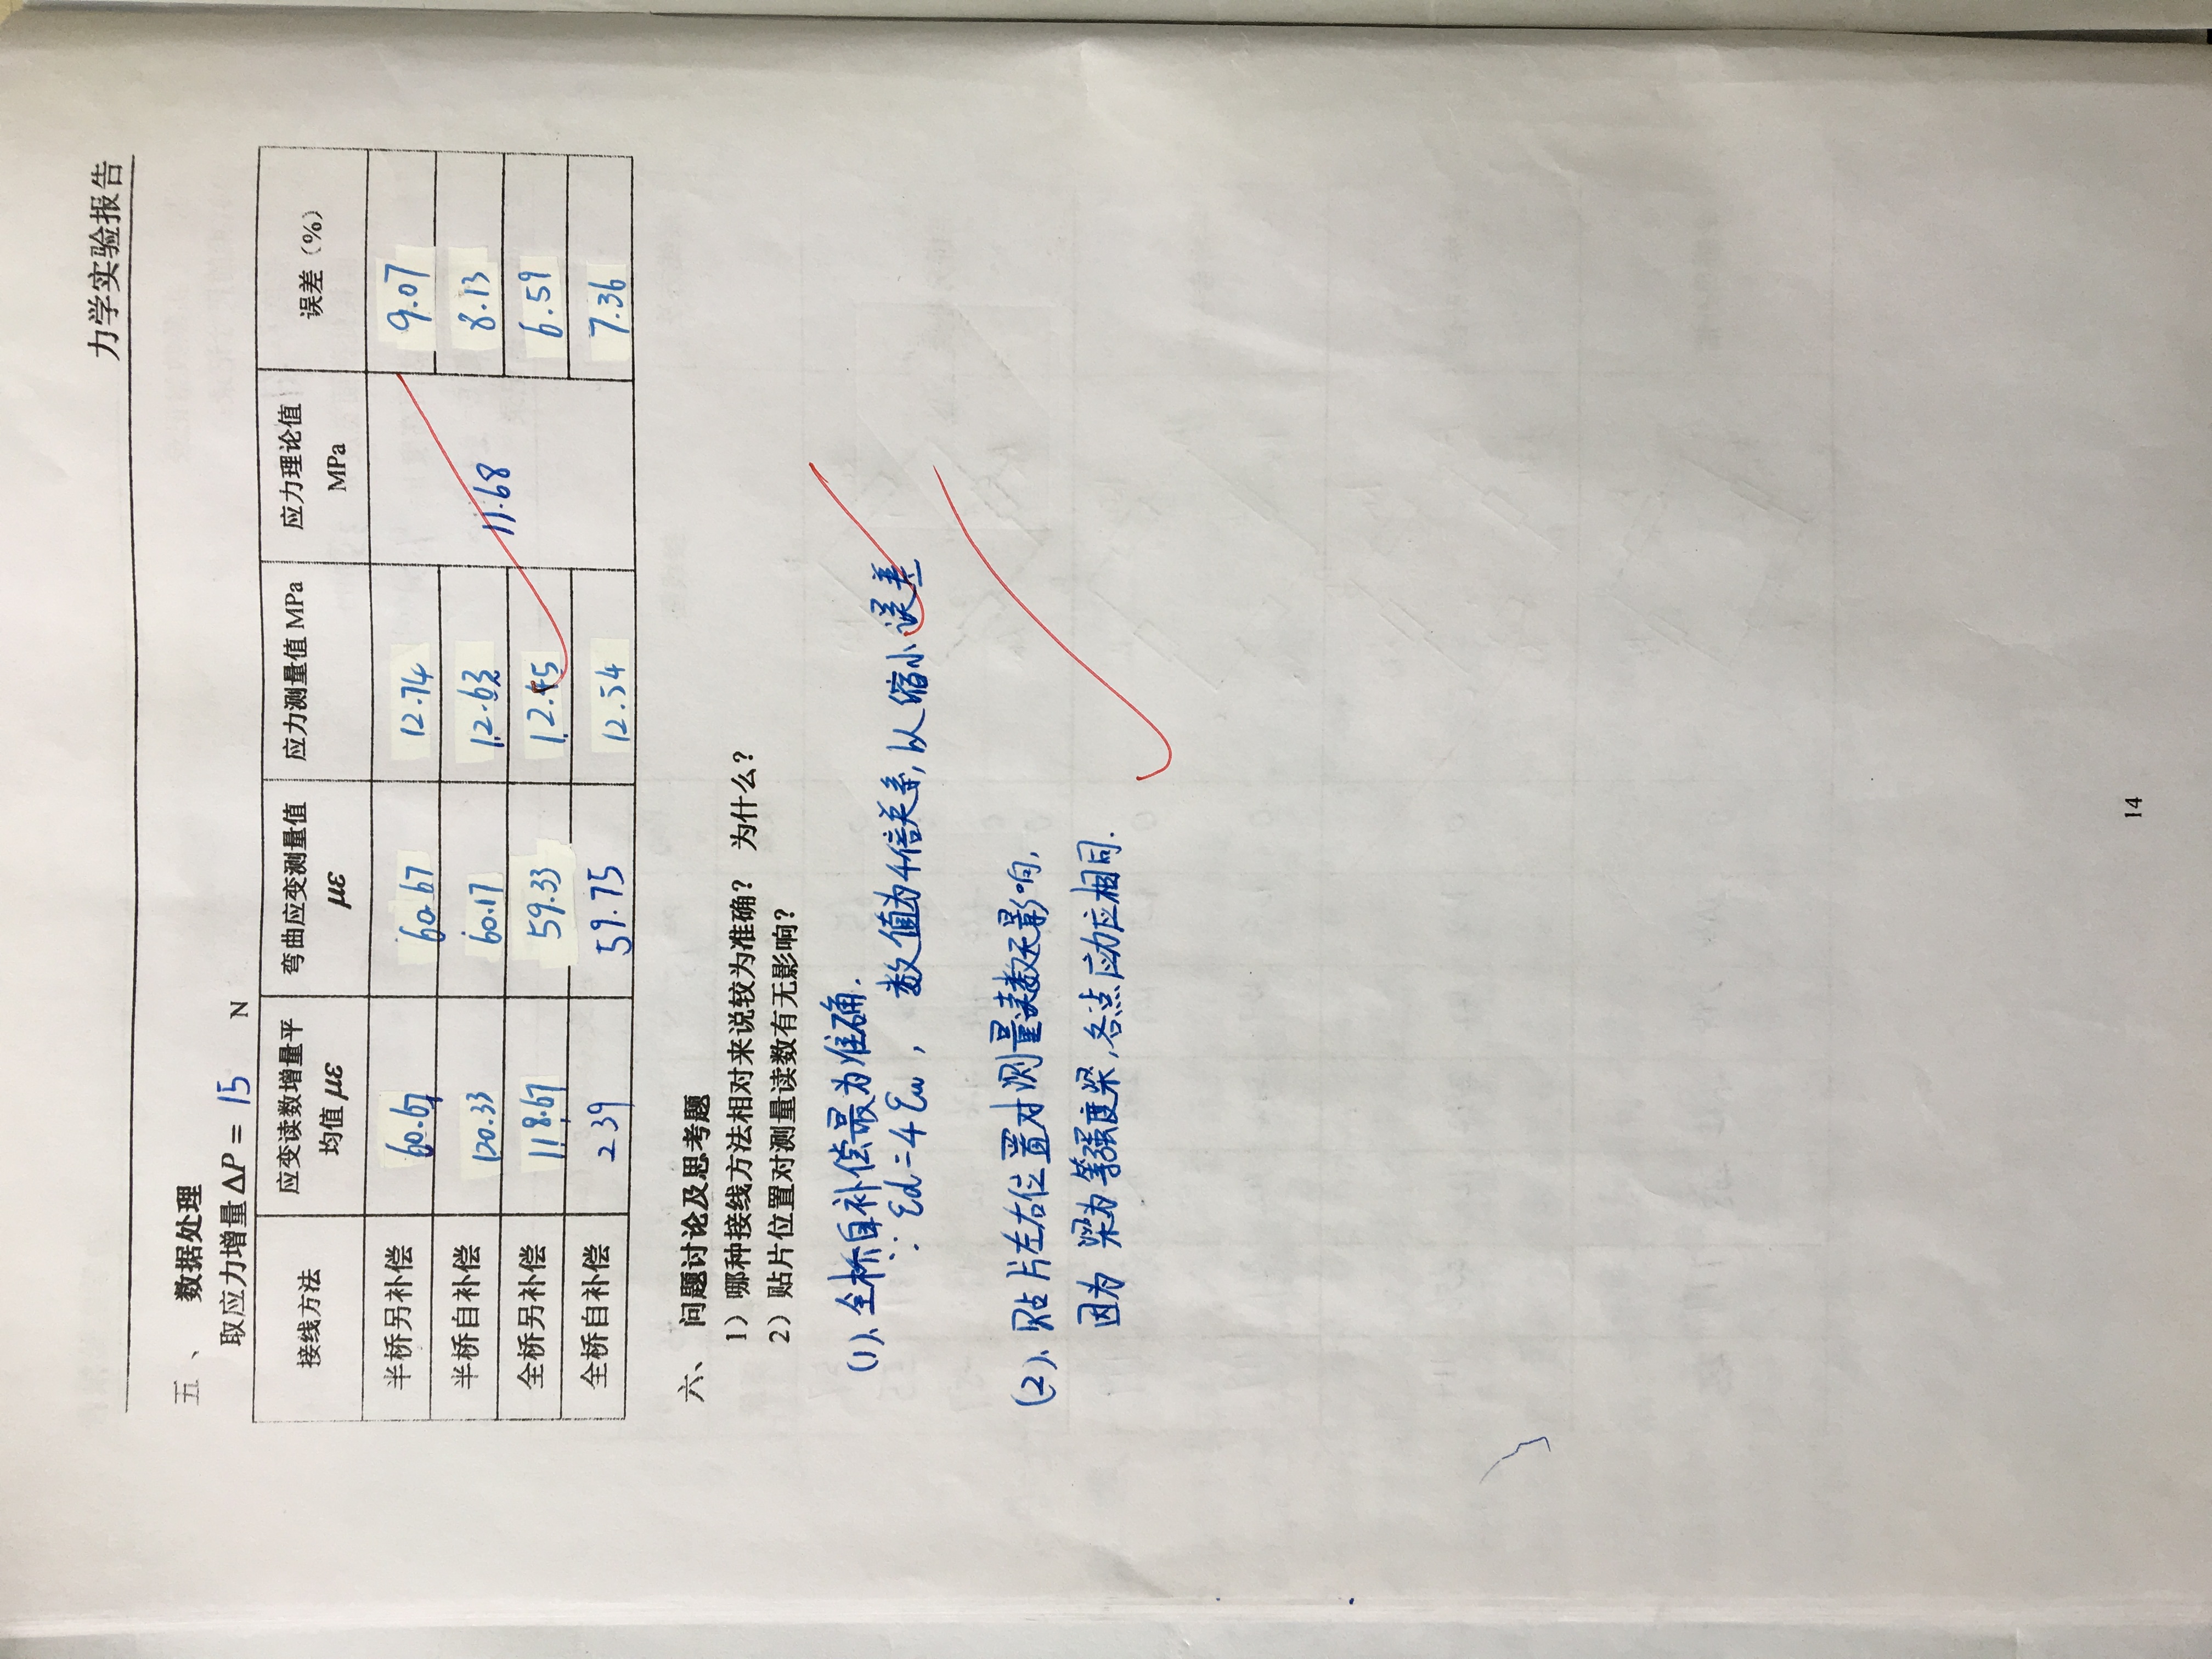 力学实验报告
五、 数据处理
取应力增量ΔP = 15 N
接线方法 应变读数增量平均值 με 弯曲应变测量值 με 应力测量值 MPa 应力理论值 MPa 误差（%）
半桥另补偿 60.67 60.67 12.74 11.68 9.07
半桥自补偿 120.33 60.17 12.63 8.13
全桥另补偿 118.67 59.33 12.45 6.59
全桥自补偿 239 59.75 12.54 7.36
六、 问题讨论及思考题
1）哪种接线方法相对来说较为准确？ 为什么？
2）贴片位置对测量读数有无影响？
(1)、全桥自补偿最为准确.
∵ εd=4εw， 数值为4倍关系,以缩小误差
(2)、贴片左右位置对测量读数无影响,
因为 梁为等强度梁,各点应力应相同.
14